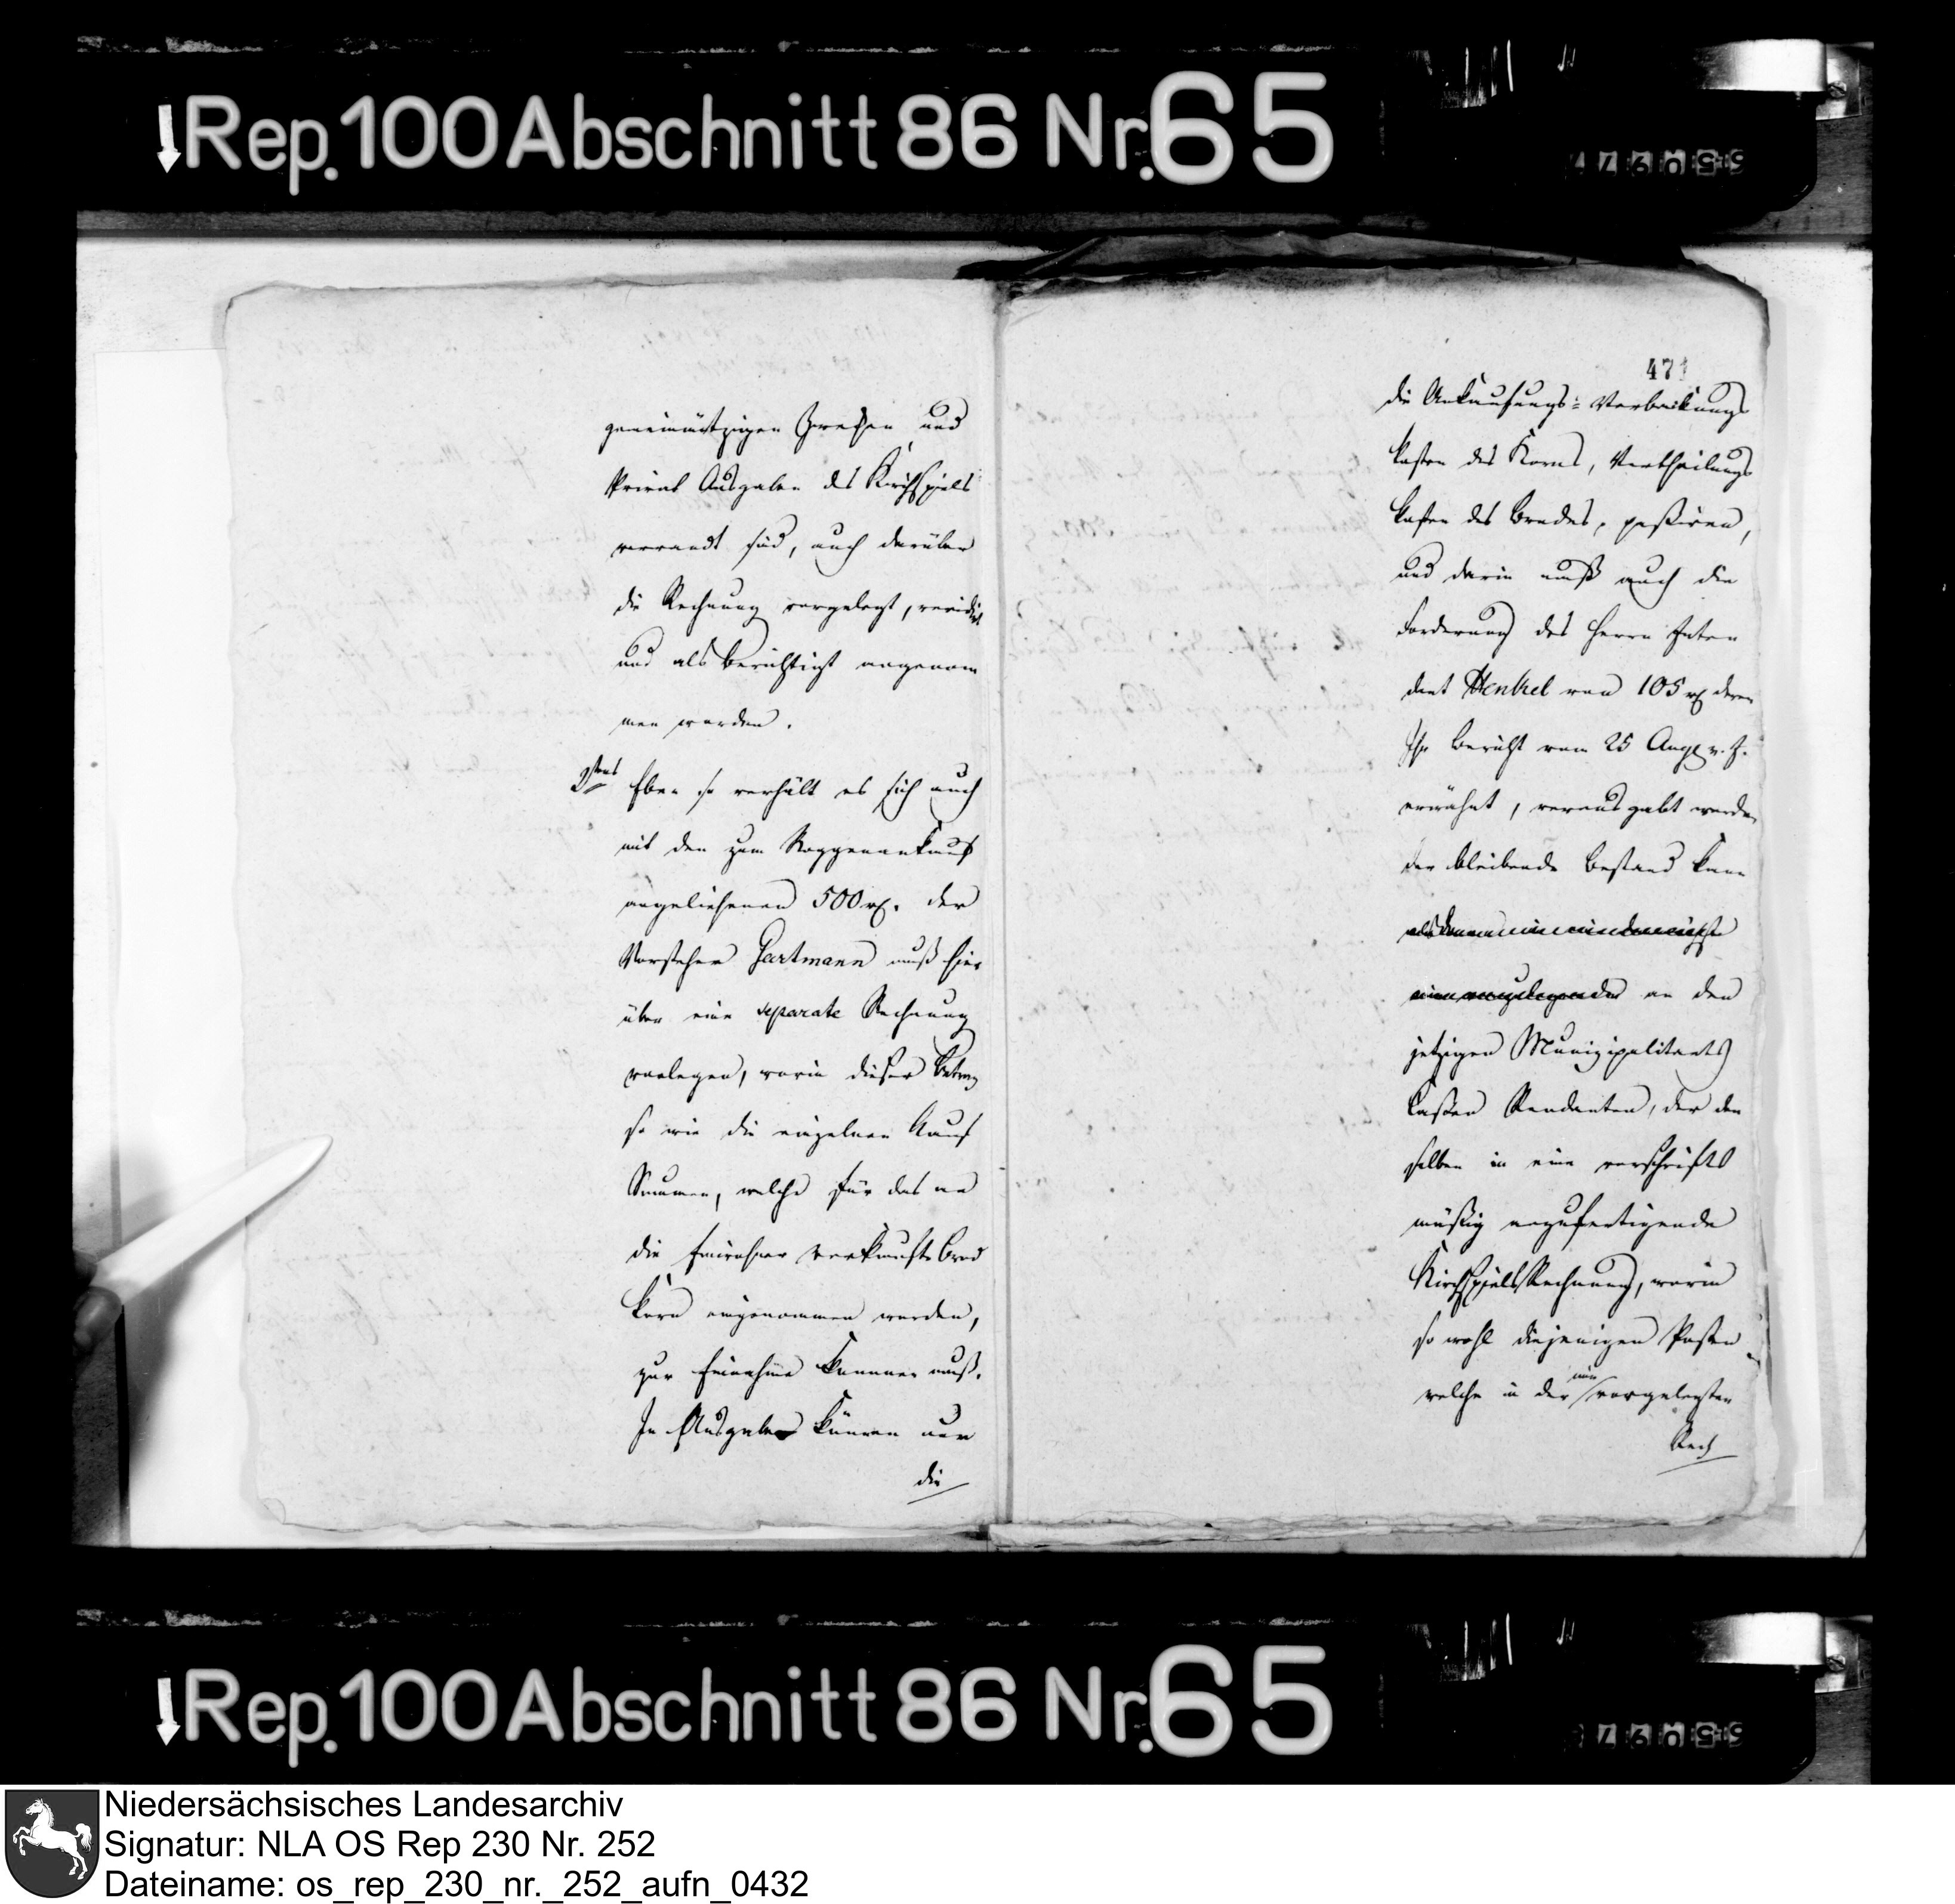 Rep. 100 Abschnitt 86 Nr. 65
gemeinnützigen Zwecken und
Privat Ausgaben des Kirchspiels
verwandt sind, auch darüber
die Rechnung vorgelegt, revidirt
und als berichtigt angenom
men worden.
2tens Eben so verhält es sich auch
mit den zum Roggenankauf
angeliehenen 500 rℓ. der
Vorsteher Hartmann muß hier
über eine separate Rechnung
vorlegen, worin dieser Betrag
so wie die einzelnen Kauf
Summen, welche für das an
die Einwohner verkaufte Brod
Korn eingenommen worden,
zur Einnahme kommen muß.
In Ausgabe können nur
die
471
die Ankaufungs- Verbackungs
kosten des Korns, Vertheilungs
kosten des Brodes, passiren,
und darin muß auch die
Forderung des Herrn Inten
dant Henkel von 105 rℓ deren
Ihr Bericht vom 25 Aug v. J.
erwähnt, verausgabt werden
der bleibende Bestand kann
an den
jetzigen Munizipalitaets
Cassen Rendanten, der den
selben in eine vorschrifts
mäßig anzufertigende
Kirchspiels Rechnung, worin
so wohl diejenigen Posten
welche in der nun vorgelegten
Rech
Rep. 100 Abschnitt 86 Nr. 65
Niedersächsisches Landesarchiv
Signatur: NLA OS Rep 230 Nr. 252
Dateiname: os_rep_230_nr._252_aufn_0432